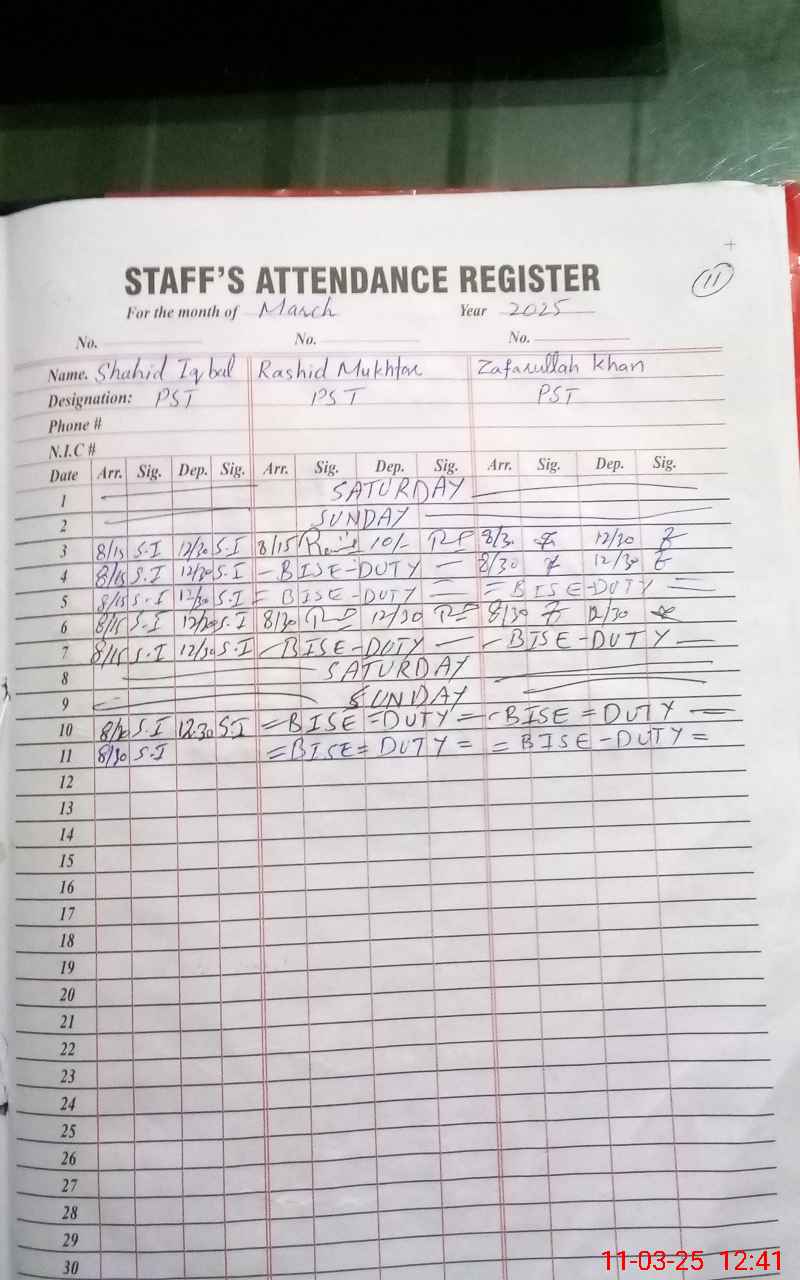 11
STAFF'S ATTENDANCE REGISTER
For the month of March Year 2025
No. No. No.
Name. Shahid Iqbal Rashid Mukhtar Zafarullah Khan
Designation: PST PST PST
Phone #
N.I.C #
Date Arr. Sig. Dep. Sig. Arr. Sig. Dep. Sig. Arr. Sig. Dep. Sig.
1 SATURDAY
2 SUNDAY
3 8/15 S.I 12/30 S.I 8/15 10/- 8/30 12/30
4 8/15 S.I 12/30 S.I - BISE-DUTY - 8/30 12/30
5 8/15 S.I 12/30 S.I = BISE-DUTY = = BISE-DUTY =
6 8/15 S.I 12/30 S.I 8/30 12/30 8/30 12/30
7 8/15 S.I 12/30 S.I - BISE-DUTY - - BISE-DUTY -
8 SATURDAY
9 SUNDAY
10 S.I 12.30 S.I = BISE = DUTY = - BISE = DUTY -
11 8/30 S.I = BISE = DUTY = = BISE - DUTY =
12
13
14
15
16
17
18
19
20
21
22
23
24
25
26
27
28
29
30
11-03-25 12:41